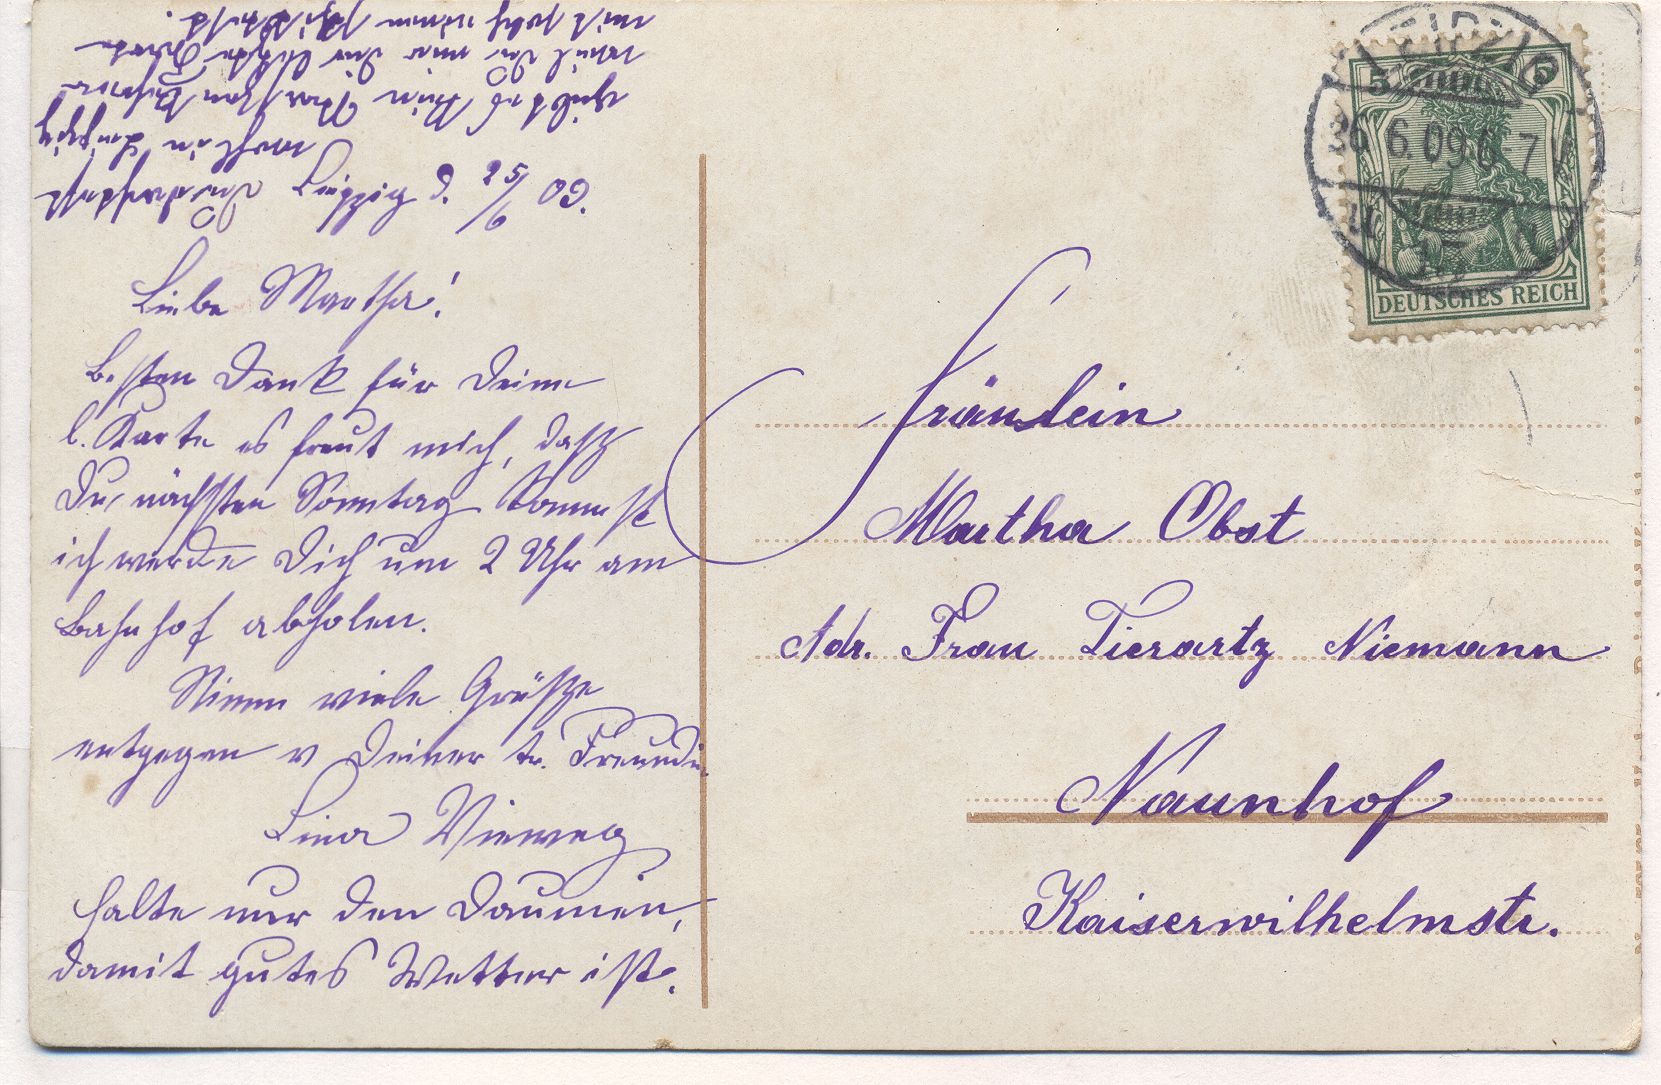 Leipzig d. 25/6 09.
Liebe Martha!
Besten Dank für Deine
l. Karte es freut mich, dasz
Du nächsten Sonntag kommst
ich werde Dich um 2 Uhr am
Bahnhof abholen.
Nimm viele Grüsze
entgegen v Deiner tr. Freundin
Lina Vieweg
halte nur den Daumen,
damit gutes Wetter ist.
wohl in Leipzig
weil Du mir
LEIPZIG
26.6.09.6-7V
13
5 5
DEUTSCHES REICH
Fräulein
Martha Obst
Adr. Frau Tierartz Niemann
Naunhof
Kaiserwilhelmstr.